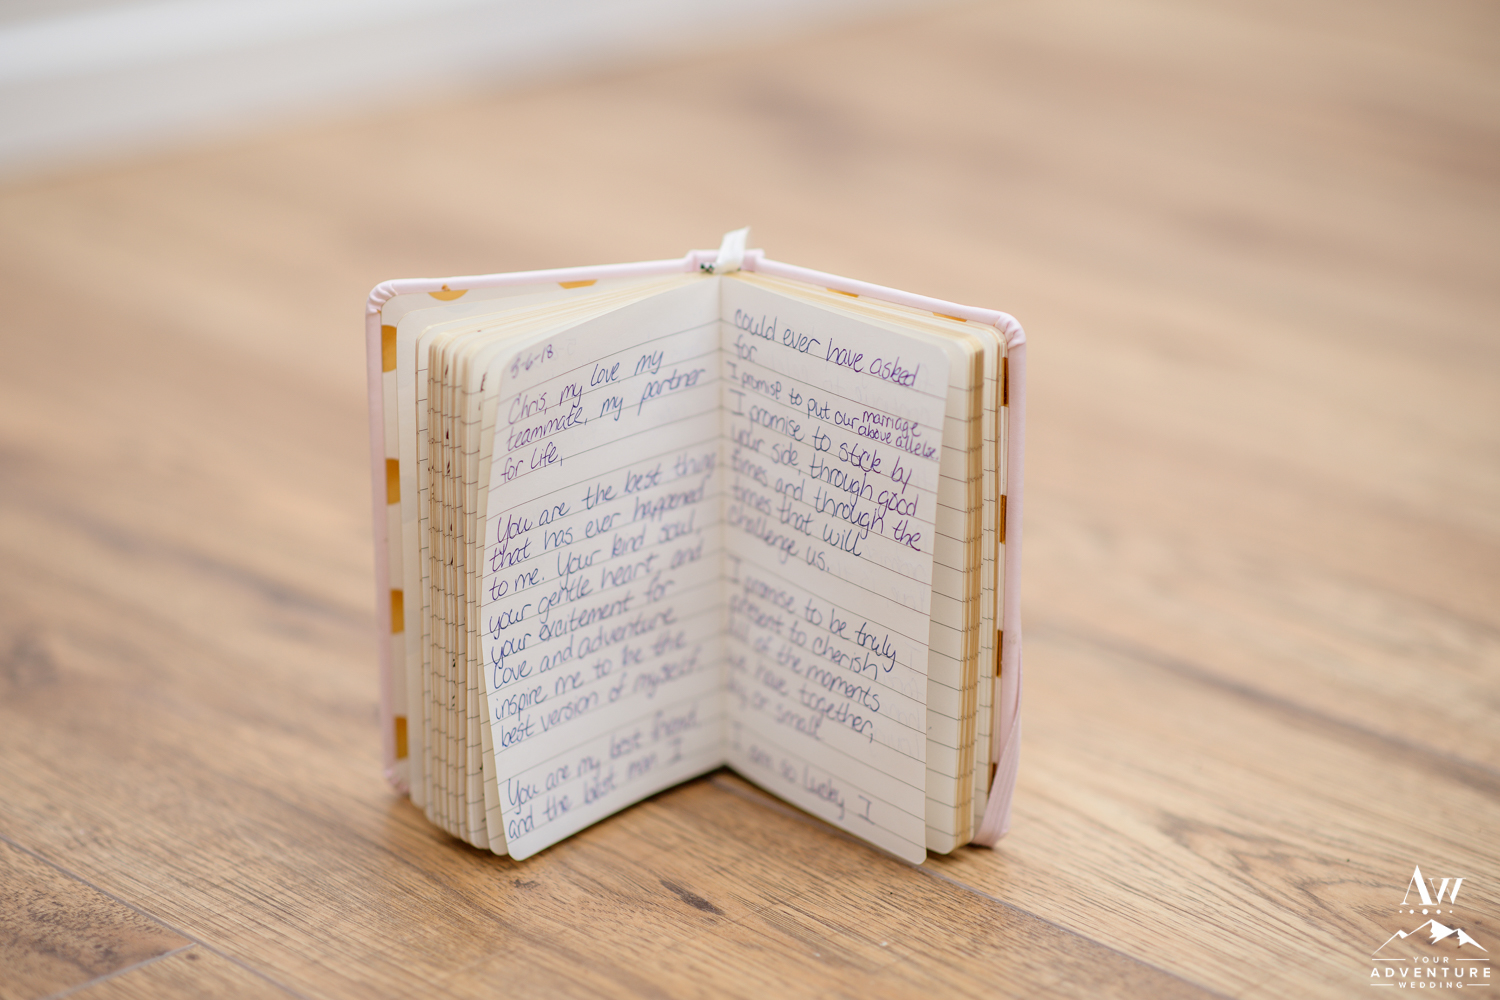 5-6-18
Chris, my love, my
teammate, my partner
for life,
You are the best thing
that has ever happened
to me. Your kind soul,
your gentle heart, and
your excitement for
love and adventure
inspire me to be the
best version of myself.
You are my best friend,
and the best man I
could ever have asked
for
I promise to put our marriage
above all else.
I promise to stick by
your side, through good
times and through the
times that will
challenge us.
I promise to be truly
present to cherish
all of the moments
we have together,
big or small
I am so lucky I
AW
YOUR
ADVENTURE
WEDDING